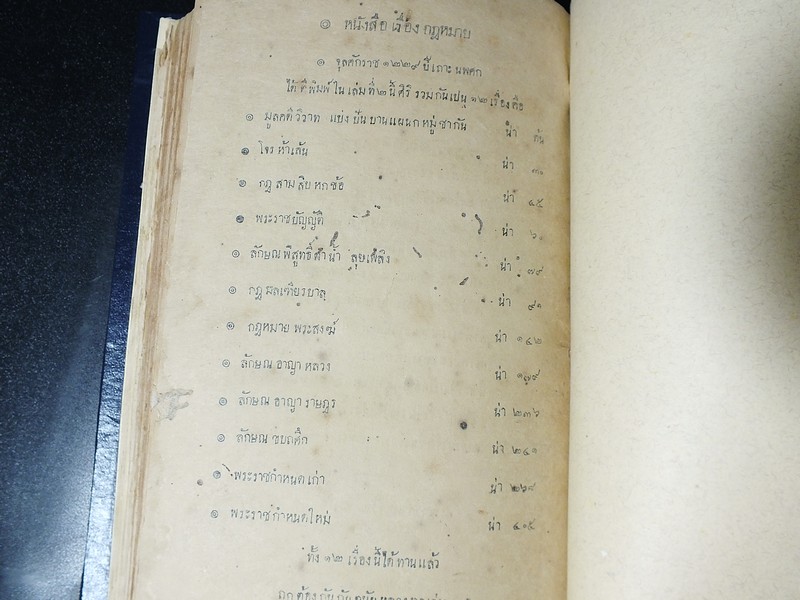 ๏ หนังสือ เรื่อง กฎหมาย
๏ จุลศักราช ๑๒๒๙ ปีเถาะ นพศก
ได้ ตีพิมพ์ ใน เล่ม ที่๒ นี้ ศิริ รวมกันเปน ๑๒ เรื่อง คือ
๏ มูลคดี วิวาท แบ่ง ปัน บานแผนก หมู่ ชา กัน น่า ต้น
๏ โจร ห้า เส้น น่า
๏ กฎ สาม สิบ หก ข้อ น่า ๔๕
๏ พระราชบัญญัติ น่า
๏ ลักษณ พิสูทธิ์ ดำน้ำ ลุยเพลิง น่า ๗๙
๏ กฎ มลเทียรบาล น่า ๙๑
๏ กฎหมาย พระสงฆ์ น่า ๑๔๒
๏ ลักษณ อาญา หลวง น่า ๑๗๙
๏ ลักษณ อาญา ราษฎร น่า ๒๓๖
๏ ลักษณ ขบถศึก น่า ๒๔๑
๏ พระราชกำหนดเก่า น่า ๒๖๙
๏ พระราชกำหนดใหม่ น่า ๔๑๕
ทั้ง ๑๒ เรื่อง นี้ได้ ทานแล้ว
ถูก ต้อง กัน กับ